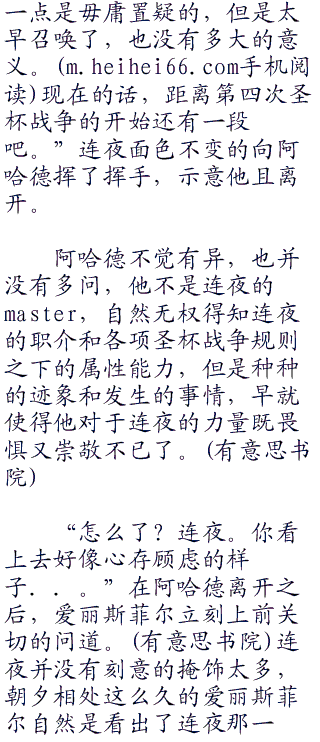 一点是毋庸置疑的，但是太
早召唤了，也没有多大的意
义。(m.heihei66.com手机阅
读)现在的话，距离第四次圣
杯战争的开始还有一段
吧。”连夜面色不变的向阿
哈德挥了挥手，示意他且离
开。
阿哈德不觉有异，也并
没有多问，他不是连夜的
master，自然无权得知连夜
的职介和各项圣杯战争规则
之下的属性能力，但是种种
的迹象和发生的事情，早就
使得他对于连夜的力量既畏
惧又崇敬不已了。(有意思书
院)
“怎么了？连夜。你看
上去好像心存顾虑的样
子．．。”在阿哈德离开之
后，爱丽斯菲尔立刻上前关
切的问道。(有意思书院)连
夜并没有刻意的掩饰太多，
朝夕相处这么久的爱丽斯菲
尔自然是看出了连夜那一